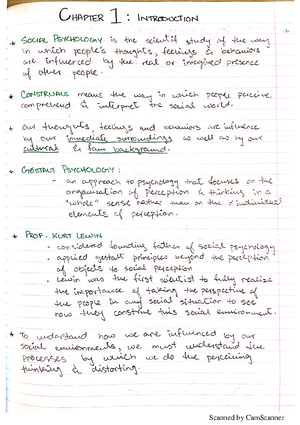 CHAPTER 1: INTRODUCTION
* SOCIAL PSYCHOLOGY is the scientif study of the way
in which people's thoughts, feelings & behaviors
are influenced by the real or imagined presence
of other people.
* CONSTRUALS means the way in which people perceive,
comprehend & interpret the social world.
* Our thoughts, feelings and behaviors are influence
by our immediate surroundings as well as by our
cultural & fam background.
* GESTALT PSYCHOLOGY:
- an approach to psychology that focuses on the
organisation of perception & thinking in a
"whole" sense rather than on the individual
elements of perception.
* PROF. KURT LEWIN
- considered founding father of social psychology
- applied gestalt principles beyond the perception
of objects to social perception
- Lewin was the first scientist to fully realise
the importance of taking the perspective of
the people in any social situation to see
how they construe this social environment.
* To understand how we are influenced by our
social environments, we must understand the
PROCESSES by which we do the perceiving
thinking & distorting.
Scanned by CamScanner